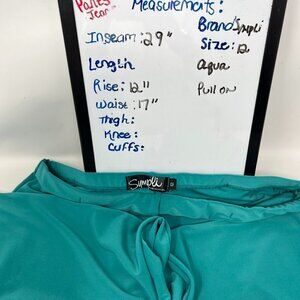 Pants
Jeans
Measurements:
Inseam: 29"
Length
Rise: 12"
Waist: 17"
Thigh:
Knee:
Cuffs:
Brand Simpli
Size: 12
aqua
Pull on
Simpli
12